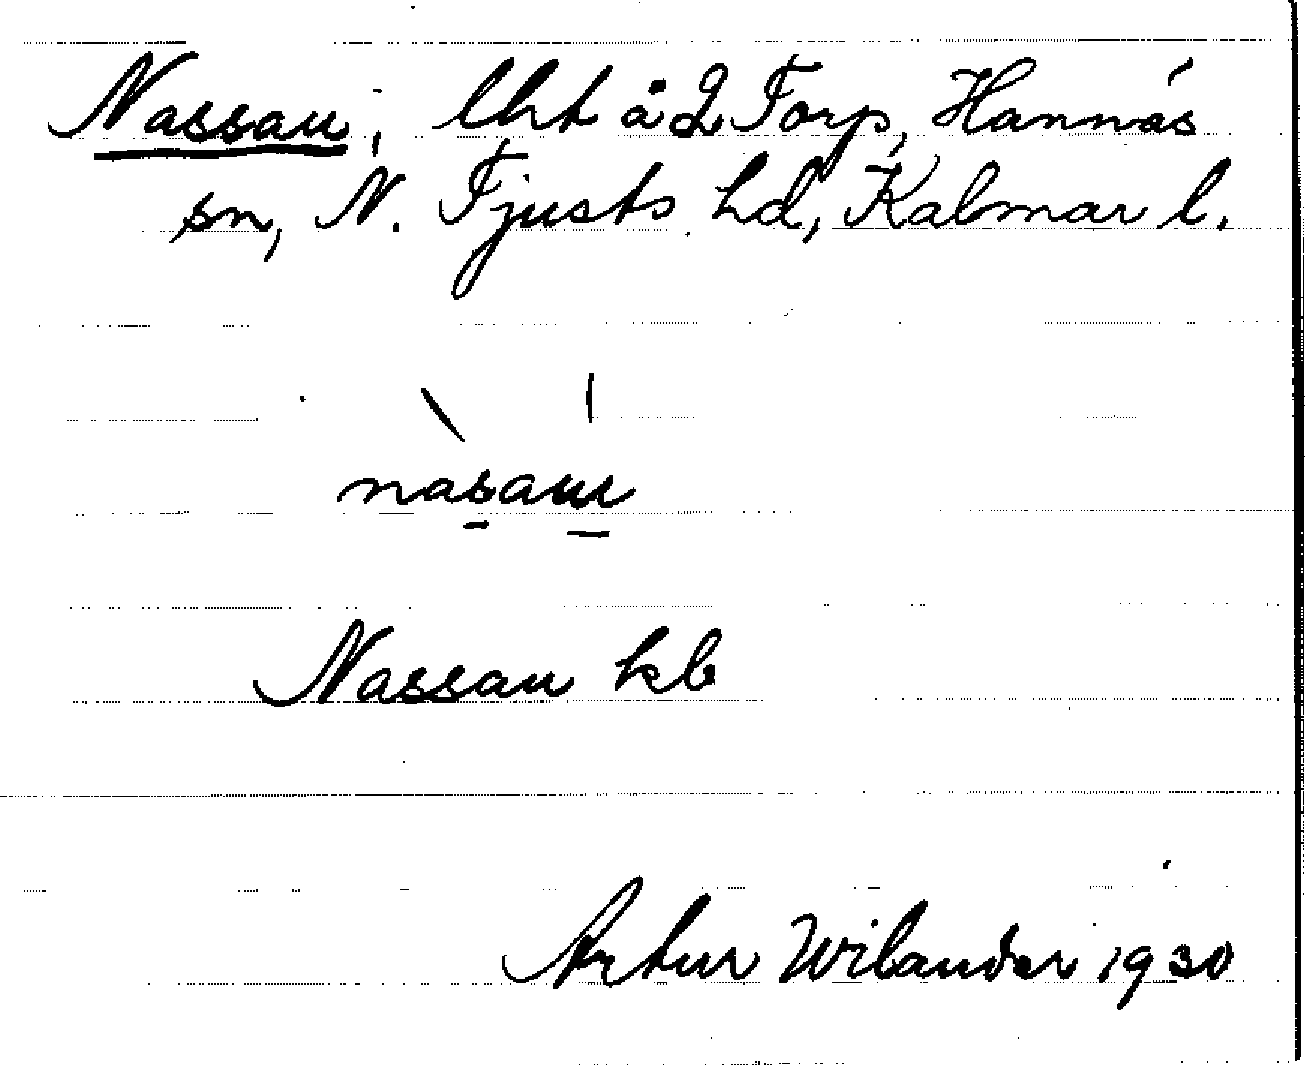 Nassau; lht å 2 Torp, Hannäs
sn, N. Tjusts hd, Kalmar l.
nasaɯ
Nassau kb
Artur Wilander 1930